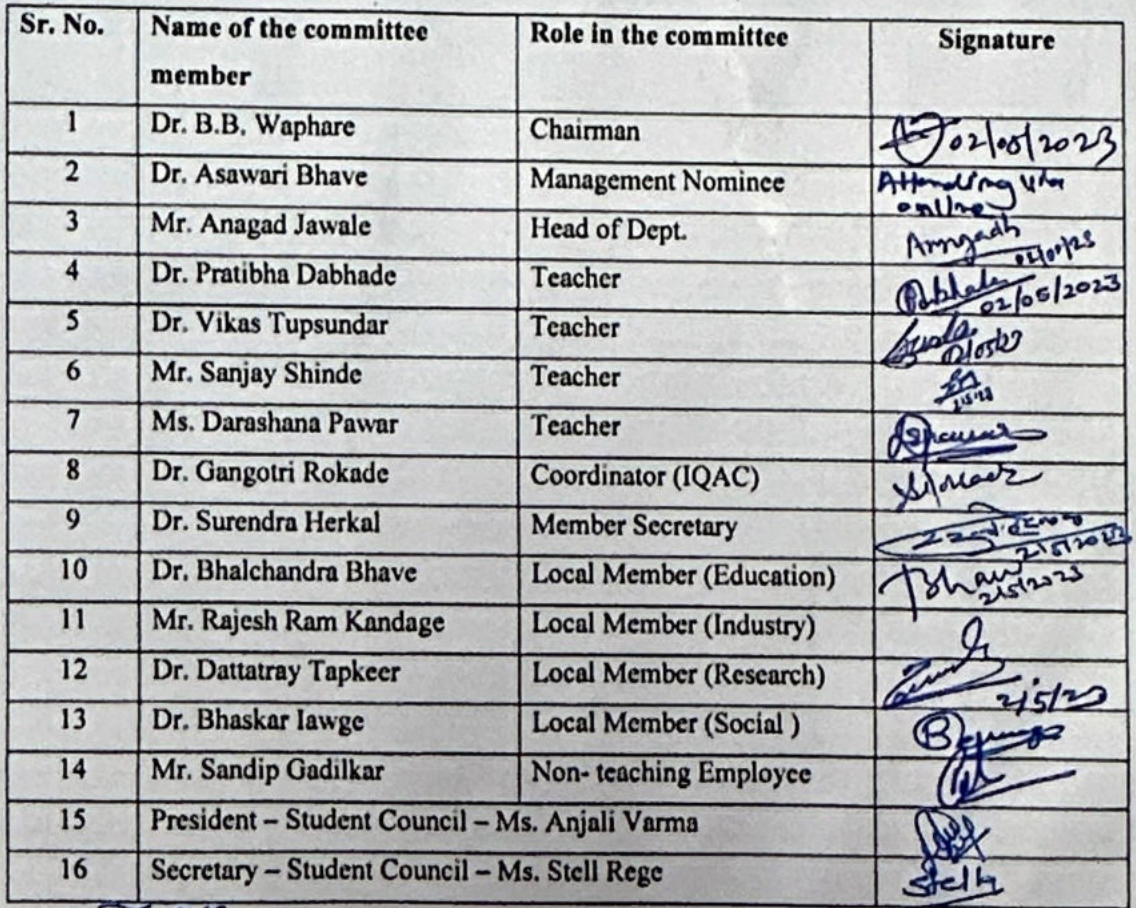 Sr. No. Name of the committee member Role in the committee Signature
1 Dr. B.B. Waphare Chairman 02/05/2023
2 Dr. Asawari Bhave Management Nominee Attending via online
3 Mr. Anagad Jawale Head of Dept.
4 Dr. Pratibha Dabhade Teacher 02/05/2023
5 Dr. Vikas Tupsundar Teacher
6 Mr. Sanjay Shinde Teacher
7 Ms. Darashana Pawar Teacher
8 Dr. Gangotri Rokade Coordinator (IQAC)
9 Dr. Surendra Herkal Member Secretary 2/5/2023
10 Dr. Bhalchandra Bhave Local Member (Education) 2/5/2023
11 Mr. Rajesh Ram Kandage Local Member (Industry)
12 Dr. Dattatray Tapkeer Local Member (Research) 2/5/23
13 Dr. Bhaskar Iawge Local Member (Social )
14 Mr. Sandip Gadilkar Non- teaching Employee
15 President – Student Council – Ms. Anjali Varma
16 Secretary – Student Council – Ms. Stell Rege